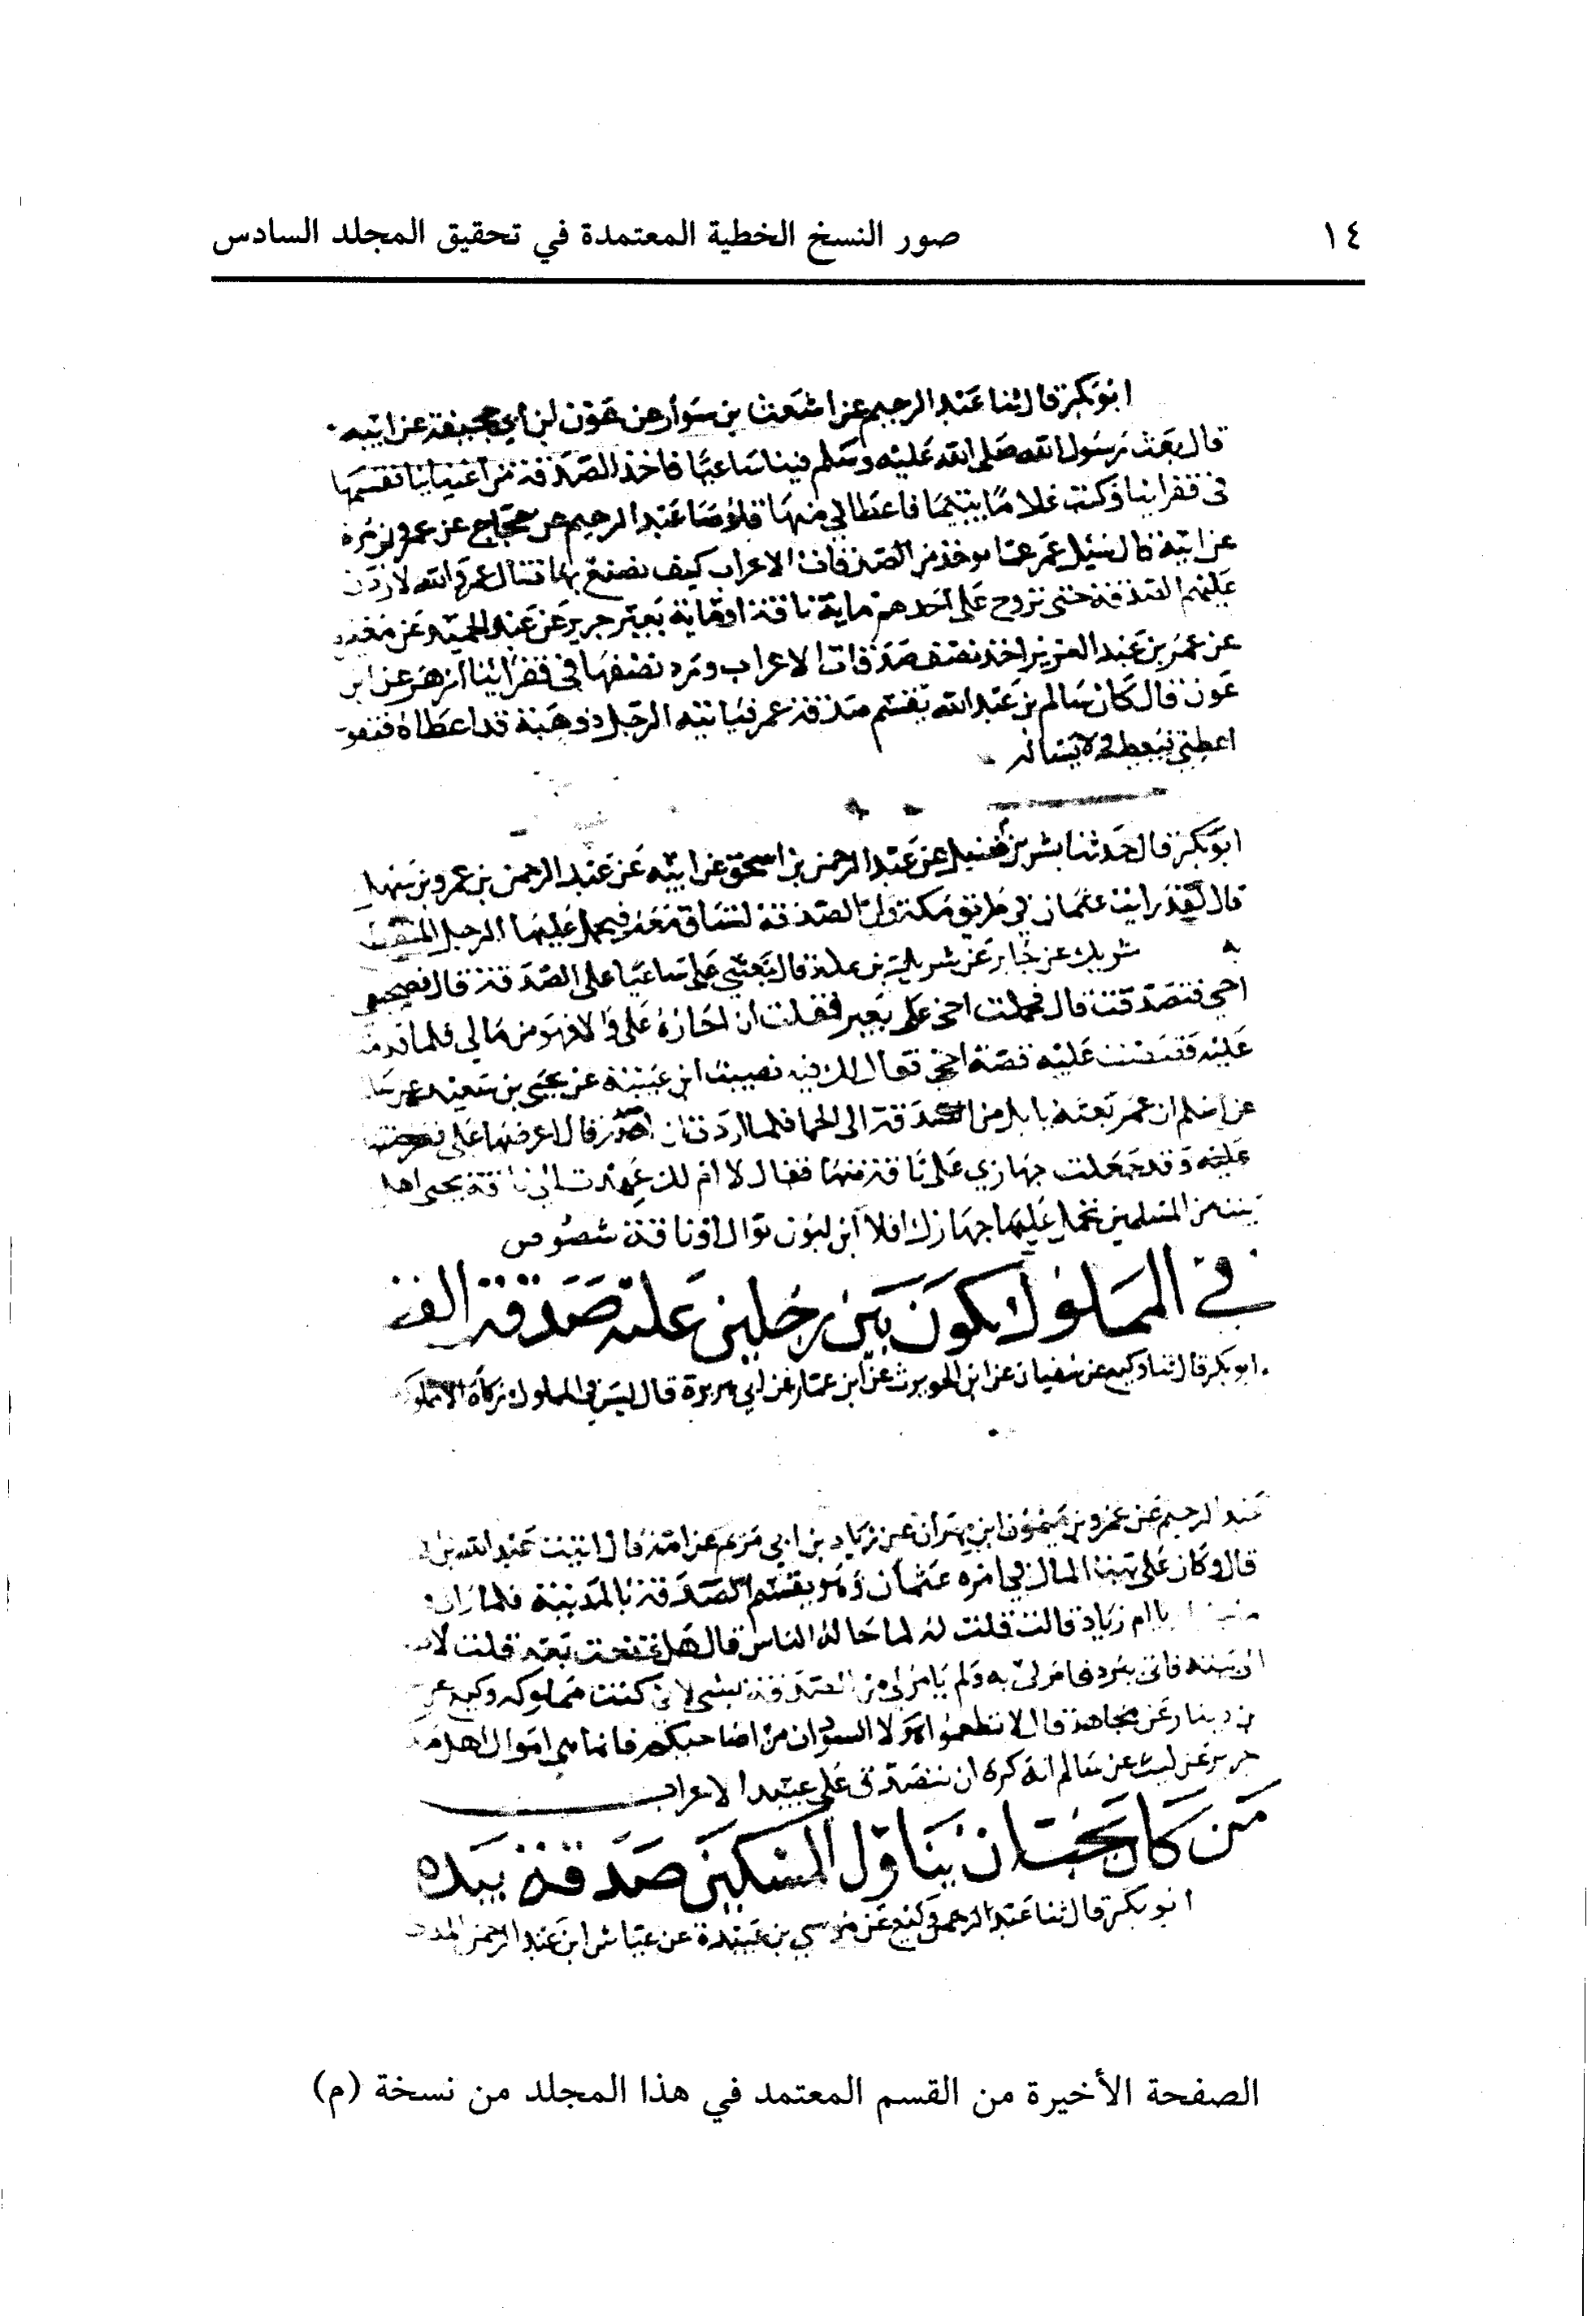 ١٤
صور النسخ الخطية المعتمدة في تحقيق المجلد السادس
ابو بكر قال ثنا عبد الرحيم عن اشعث بن سوار عن عون بن أبي جحيفة عن ابيه
قال بعث رسول الله صلى الله عليه وسلم فينا ساعيا فاخذ الصدقة من اغنيائنا فقسمها
في فقرائنا وكنت غلاما يتيما فاعطاني منها قلوصا عبد الرحيم عن حجاج عن عمرو بن مرة
عن ابيه قال سئل عمر عما يوخذ من صدقات الاعراب كيف نصنع بها فقال عمر والله لاردن
عليهم الصدقة حتى تروح على احدهم ماية ناقة او ماية بعير جرير عن عبد الحميد عن
عن عمر بن عبد العزيز اخذ نصف صدقات الاعراب ورد نصفها في فقرائنا ازهر عن ابن
عون قال كان سالم بن عبد الله يقسم صدقة عمر فياتيه الرجل ذو هيئة قد اعطاه فيقول
اعطني فيعطي ولا يساله
ابو بكر قال حدثنا بشر بن عن عبد الرحمن بن اسحق عن ابيه عن عبد الرحمن بن عمرو بن سهل
قال لقد رايت عثمان في طريق مكة وان الصدقة لتساق معه فيحمل عليها الرجل
شريك عن جابر عن شريك بن نملة قال بعثني علي ساعيا على الصدقة قال فصحبني
اخي فتصدقت قال فحملت اخي على بعير فقلت ان اجازه علي والا فهو من مالي فلما قدمت
عليه قصصت عليه قصة اخي فقال لك فيه نصيب ابن عيينة عن يحيى بن سعيد عن
عن اسلم ان عمر بعثه بابل من الصدقة الى الحما فلما اردت ان اصدر قال اعرضها علي فعرضتها
عليه وقد جعلت جهازي على ناقة منها فقال لا ام لك عمدت الى ناقة يحيى اهل
بيت من المسلمين تحمل عليها جهازك افلا ابن لبون بوال او ناقة شصوص
في المملوك يكون بين رجلين عليه صدقة الفطر
ابو بكر قال ثنا وكيع عن سفيان عن ابن الحويرث عن ابن عمار عن ابي هريرة قال ليس في المملوك زكاة الا مملوك
عبد الرحيم عن عمرو بن ميمون ابن مهران عن زياد بن ابي مريم عن امه قال اتيت عبد الله بن
قال وكان على بيت المال في امرة عثمان وهو يقسم الصدقة بالمدينة فلما راني
يا ام زياد قالت قلت له لما جا له الناس قال هل عتقت بعد قلت لا
الى بيته فاتى ببرد فامر لي به ولم يامر لي من الصدقة بشي لاني كنت مملوكه وكيع عن
بن دينار عن مجاهد قال لا تطعموا هولا السودان من اضاحيكم فانما هي اموال اهل مكة
جرير عن ليث عن سالم انه كره ان يتصدق على عبيد الاعراب
من كان يحب ان يناول المسكين صدقة بيده
ابو بكر قال ثنا عبد الرحمن وكيع عن موسى بن عبيدة عن عباس ابن عبد الرحمن المدني
الصفحة الأخيرة من القسم المعتمد في هذا المجلد من نسخة (م)